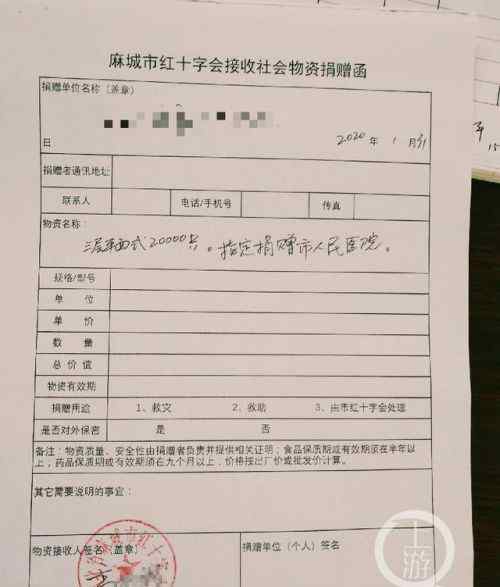 麻城市红十字会接收社会物资捐赠函
捐赠单位名称（盖章）
2020 年 1 月 31
日
捐赠者通讯地址
联系人 电话/手机号 传真
物资名称：
20000只。指定捐赠市人民医院。
规格/型号
单 位
单 价
数 量
总 价 值
物资有效期
捐赠用途 1、救灾 2、救助 3、由市红十字会处理
是否对外保密 是 否
备注：物资质量、安全性由捐赠者负责并提供相关证明；食品保质期或有效期须在半年以
上；药品保质期或有效期须在九个月以上，价格按出厂价或批发价计算。
其它需要说明的事宜：
物资接收人签名（盖章） 捐赠单位（个人）签名
城市红十字
上游